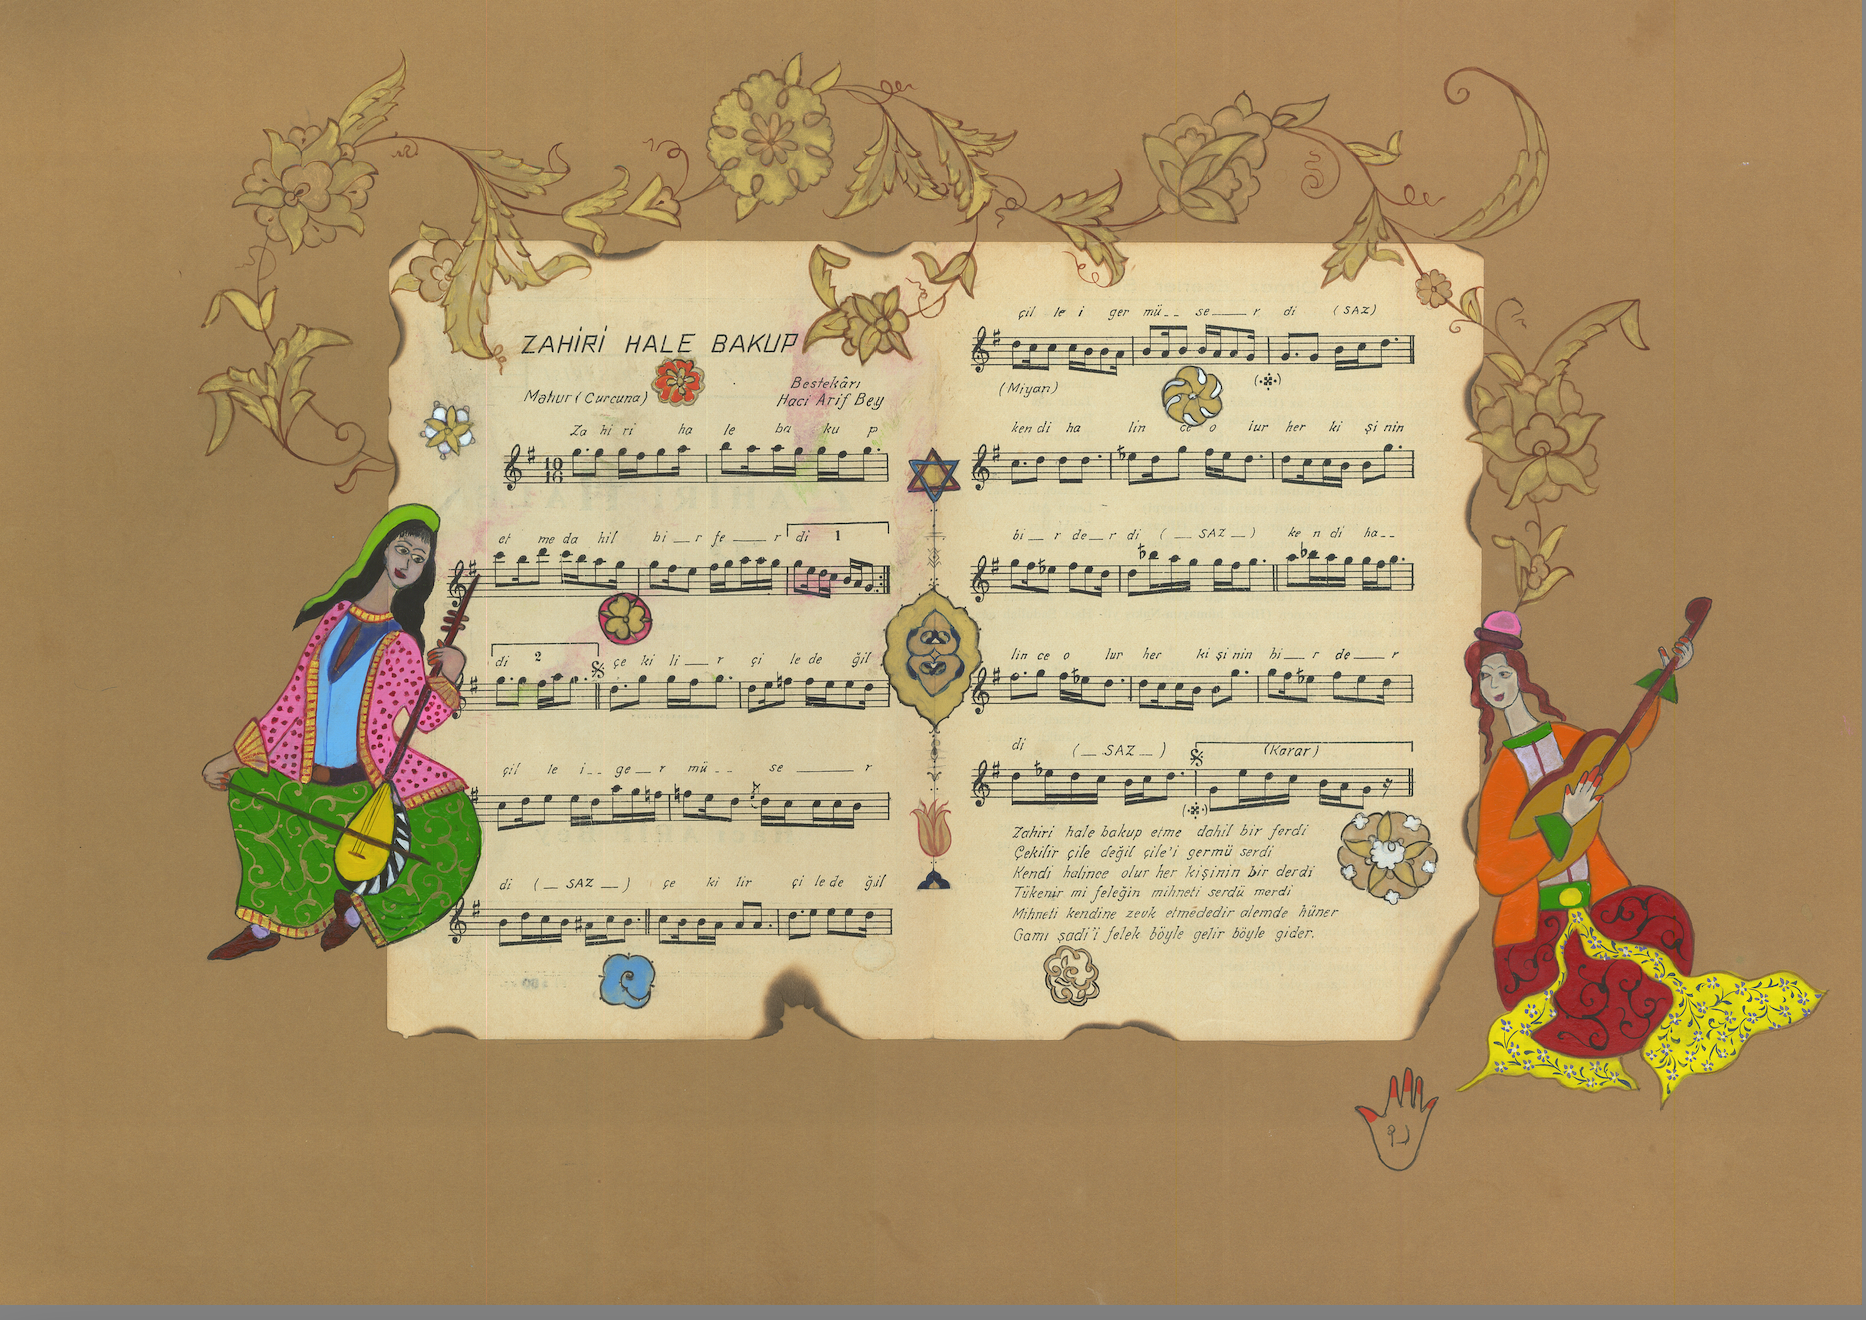 ZAHİRİ HALE BAKUP
Mahur (Curcuna)
Bestekârı
Hacı Arif Bey
Za hi ri ha le ba ku p
et me da hil bi _ r fe _ r di 1
di 2 çe ki li _ r çi le de ğil
çil le i _ _ ge _ r mü _ _ se _ r
di ( _ SAZ _ ) çe ki lir çi le de ğil
çil le i ger mü _ _ se _ r di (SAZ)
(Miyan)
ken di ha lin ce o lur her ki şi nin
bi _ r de _ r di ( _ SAZ _ ) ke n di ha _ _
lin ce o lur her ki şi nin bi _ r de _ r
di ( _ SAZ _ ) (Karar)
Zahiri hale bakup etme dahil bir ferdi
Çekilir çile değil çile'i germü serdi
Kendi halince olur her kişinin bir derdi
Tükenir mi feleğin mihneti serdü merdi
Mihneti kendine zevk etmededir alemde hüner
Gamı şadi'i felek böyle gelir böyle gider.